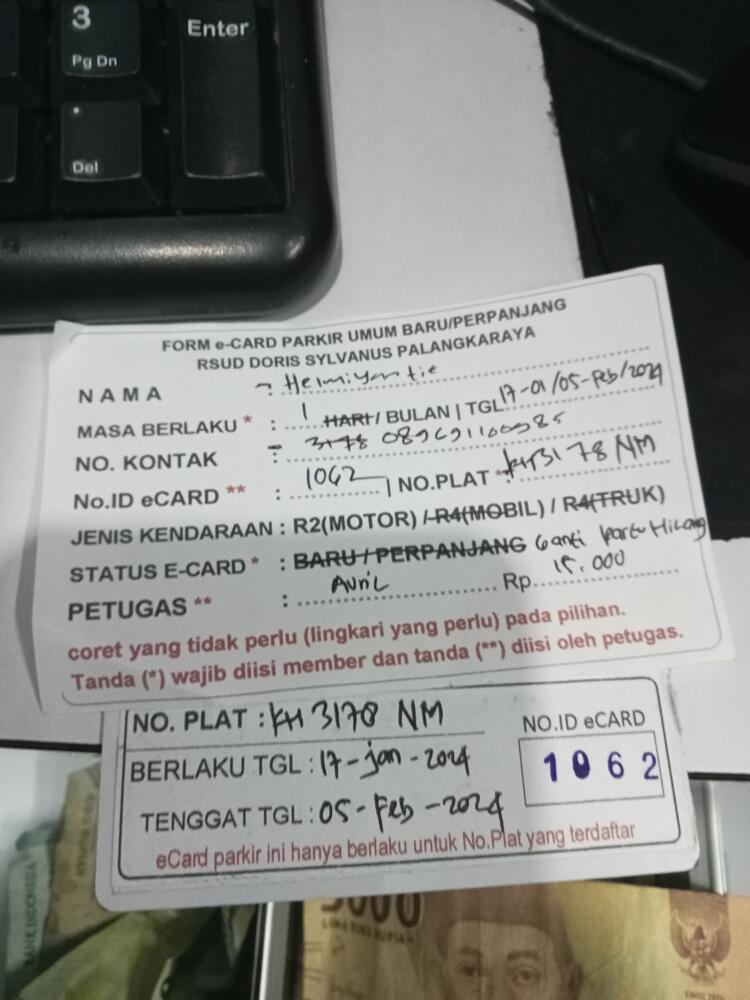 3
Pg Dn
Enter
.
Del
FORM e-CARD PARKIR UMUM BARU/PERPANJANG
RSUD DORIS SYLVANUS PALANGKARAYA
NAMA : Helmiyantie
MASA BERLAKU * : 1 HARI / BULAN | TGL 17-01/05-Feb/2024
NO. KONTAK : 3178
No.ID eCARD ** : 1062 | NO.PLAT * KH 3178 NM
JENIS KENDARAAN : R2(MOTOR) / R4(MOBIL) / R4(TRUK)
STATUS E-CARD * : BARU / PERPANJANG Ganti Kartu Hilang
PETUGAS ** : Avril Rp. 15.000
coret yang tidak perlu (lingkari yang perlu) pada pilihan.
Tanda (*) wajib diisi member dan tanda (**) diisi oleh petugas.
NO. PLAT : KH 3178 NM
NO.ID eCARD
BERLAKU TGL : 17-Jan-2024
1062
TENGGAT TGL : 05-Feb-2024
eCard parkir ini hanya berlaku untuk No.Plat yang terdaftar
BANK INDONESIA
5000
LIMA RIBU RUPIAH